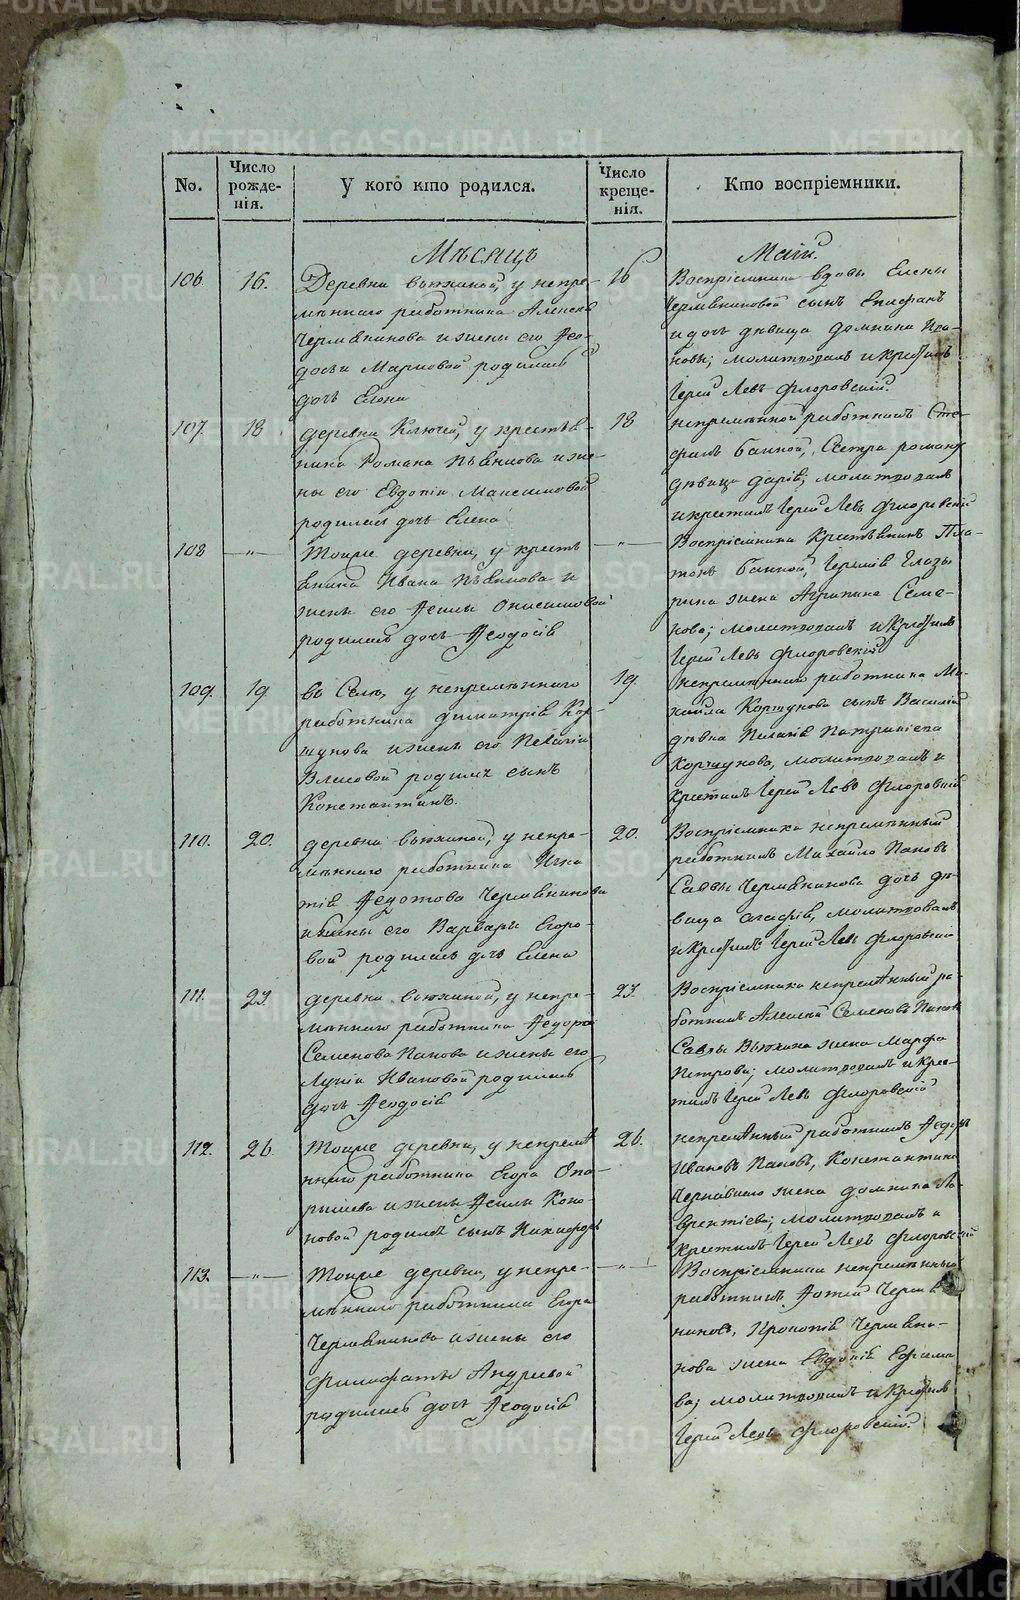 METRIKI.GASO-URAL.RU
No.
Число рожденія.
У кого кто родился.
Число крещенія.
Кто воспріемники.
Мѣсяцъ
Маій
106.
16.
Деревни Вьюхиной, у непре-
мѣннаго работника Алексѣя
Черм и жены его Ѳео-
досьи Марковой родилась
дочь Елена
16
Воспріемники вдовы Елены
сынъ Епифанъ
и дочь дѣвица Домника Ива-
нова; молитвовалъ и крестилъ
Іерей Левъ Флоровскій.
107.
18
деревни Ключей, у крестья-
нина Романа и же-
ны его Евдокіи Максимовой
родилась дочь Елена
18
непремѣнной работникъ Сте-
фанъ Банной, Сестра
дѣвица Дарія; молитвовалъ
и крестилъ Іерей Левъ Флоровскій
108
— „ —
Тоиже деревни, у кресть
янина Ивана и
жены его Аксиньи Онисимовой
родилась дочь Ѳеодосія
— „ —
Воспріемники Крестьянинъ Пла-
тонъ Банной,
жена Агрипина Семе-
нова; молитвовалъ и крестилъ
Іерей Левъ Флоровскій
109.
19
въ Селѣ, у непремѣннаго
работника Димитрія Кор-
шунова и жены его Пелагіи
Власовой родился сынъ
Константинъ.
19.
непремѣннаго работника Ми-
хайла Коршунова сынъ Василій
дѣвка Пелагія
Коршунова, молитвовалъ и
крестилъ Іерей Левъ Флоровскій
110.
20.
деревни Вьюхиной, у непре-
мѣннаго работника Игна-
тія Ѳедотова
и жены его Варвары Егоро-
вой родилась дочь Елена
20.
Воспріемники непремѣнный
работникъ Михайло Пановъ
Саввы дочь дѣ-
вица Агафія, молитвовалъ
и крестилъ Іерей Левъ Флоровскій
111.
23.
деревни Вьюхиной, у непре-
мѣннаго работника Ѳедора
Семенова Панова и жены его
Лукіи Ивановой родилась
дочь Ѳеодосія
23.
Воспріемники непремѣнный ра-
ботникъ Алексѣй Семеновъ Пановъ
Саввы Вьюхина жена Марфа
Петрова; молитвовалъ и крес-
тилъ Іерей Левъ Флоровскій
112.
26
Тоиже деревни, у непремѣ
ннаго работника Егора Опа-
рышева и жены Аксиньи Коно-
новой родился сынъ Никифоръ
26.
непремѣнный работникъ Ѳедоръ
Ивановъ Пановъ, Константина
жена Домника Ла-
врентіева; молитвовалъ и
крестилъ Іерей Левъ Флоровскій
113.
— „ —
Тоиже деревни, у непре-
мѣннаго работника Егора
и жены его
Филофаты Андреевой
родилась дочь Ѳеодосія
— „ —
Воспріемники непремѣнный
работникъ Фотей
Прокопія
жена Евдокія Ефимо
ва; молитвовалъ и крестилъ
Іерей Левъ Флоровскій.